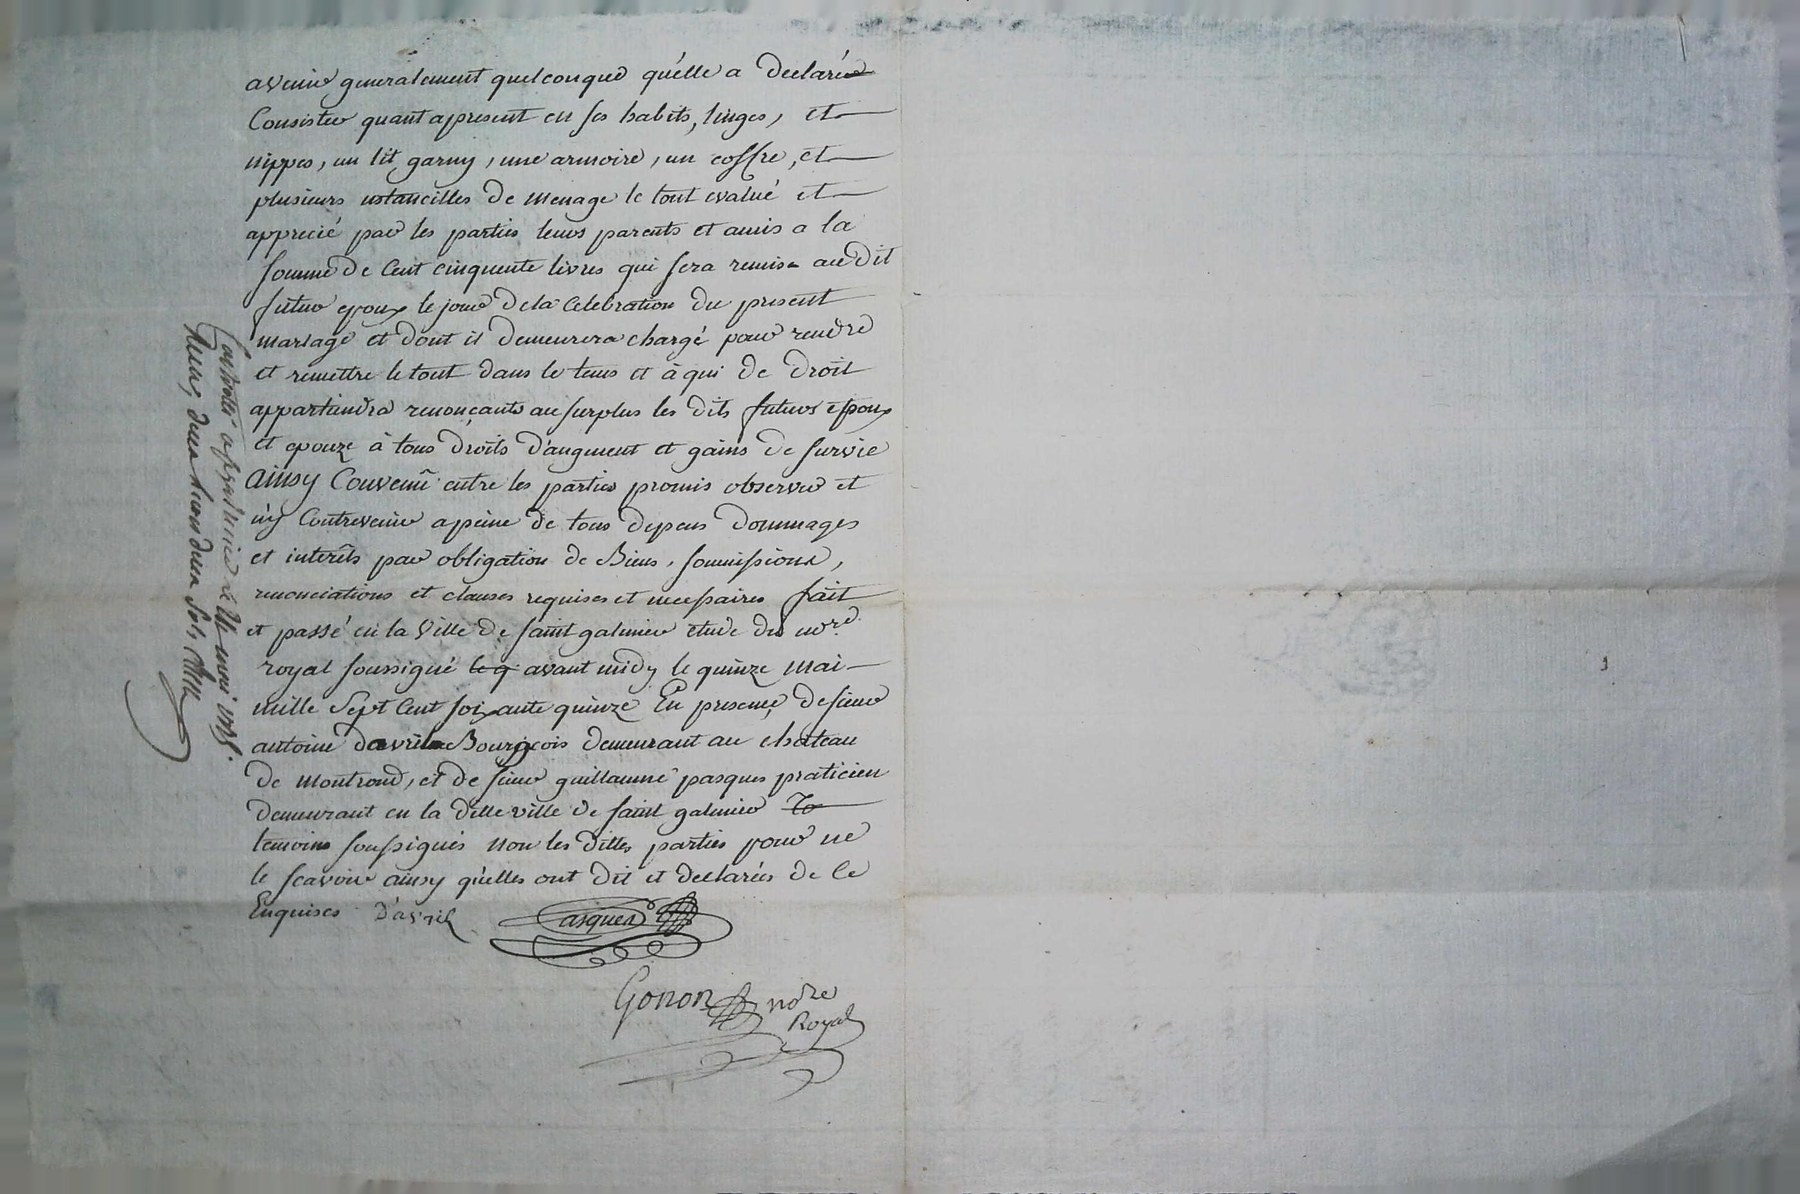 avenir generalement quelconque qu'elle a declarée
Consister quant apresent en ses habits, linges, et
nippes, un lit garny, une armoire, un coffre, et
plusieurs ustancilles de menage le tout evalué et
apprecié par les parties leurs parents et amis a la
somme de Cent cinquente livres qui sera remise au dit
futur epoux le jour de la Celebration du present
mariage et dont il demeurera chargé pour rendre
et remettre le tout dans le tems et à qui de droit
appartiendra renonçants au surplus les dits futurs epoux
et epouze à tous droits d'augment et gains de survie
ainsy Convenû entre les parties promis observer et
n'y Contrevenir a peine de tous depens dommages
et interêts par obligation de Biens, soumissions,
renonciations et clauses requises et necessaires fait
et passé en la Ville de saint galmier etude du no.re
royal soussigné avant midy le quinze mai
mille Sept Cent soixante quinze En presence de sieur
antoine davril Bourgeois demeurant au chateau
de montrond, et de sieur guillaume pasques praticien
demeurant en la ditte ville de saint galmier
temoins soussignés non les dittes parties pour ne
le scavoir ainsy qu'elles ont dit et declarées de Ce
Enquises D'avril Pasques
Gonon no.re
Royal
Controllé a st galmier le mai 1775.
Reçu